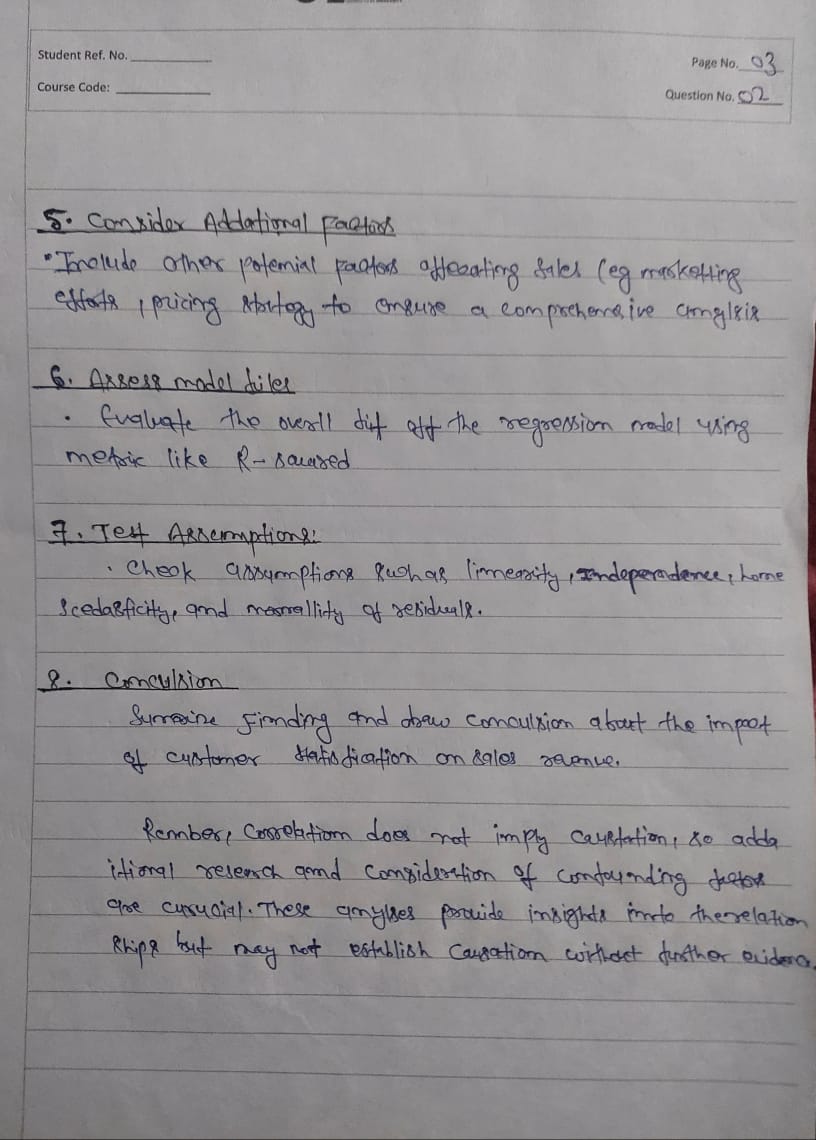 Student Ref. No.
Page No. 03
Course Code:
Question No. 02
5. Consider Addational Factors
Include other potemial factors affecating sales (eg marketting
efforts, pricing strtegy to ensure a comprehensive
6. Assess model
Evaluate the overll off the regression model using
metric like R-sauared
7. Test Assemptions:
Check assumptions such as linnearity, Independence, home
scedasticity, and of residuals.
8. Conculsion
Findding and draw conculsion about the impact
of customer on sales revenue.
Rember, Correlation does not imply, so adda
itional research and consideration of confounding factors
are. These provide insights into the relation
ships but may not establish Causation further